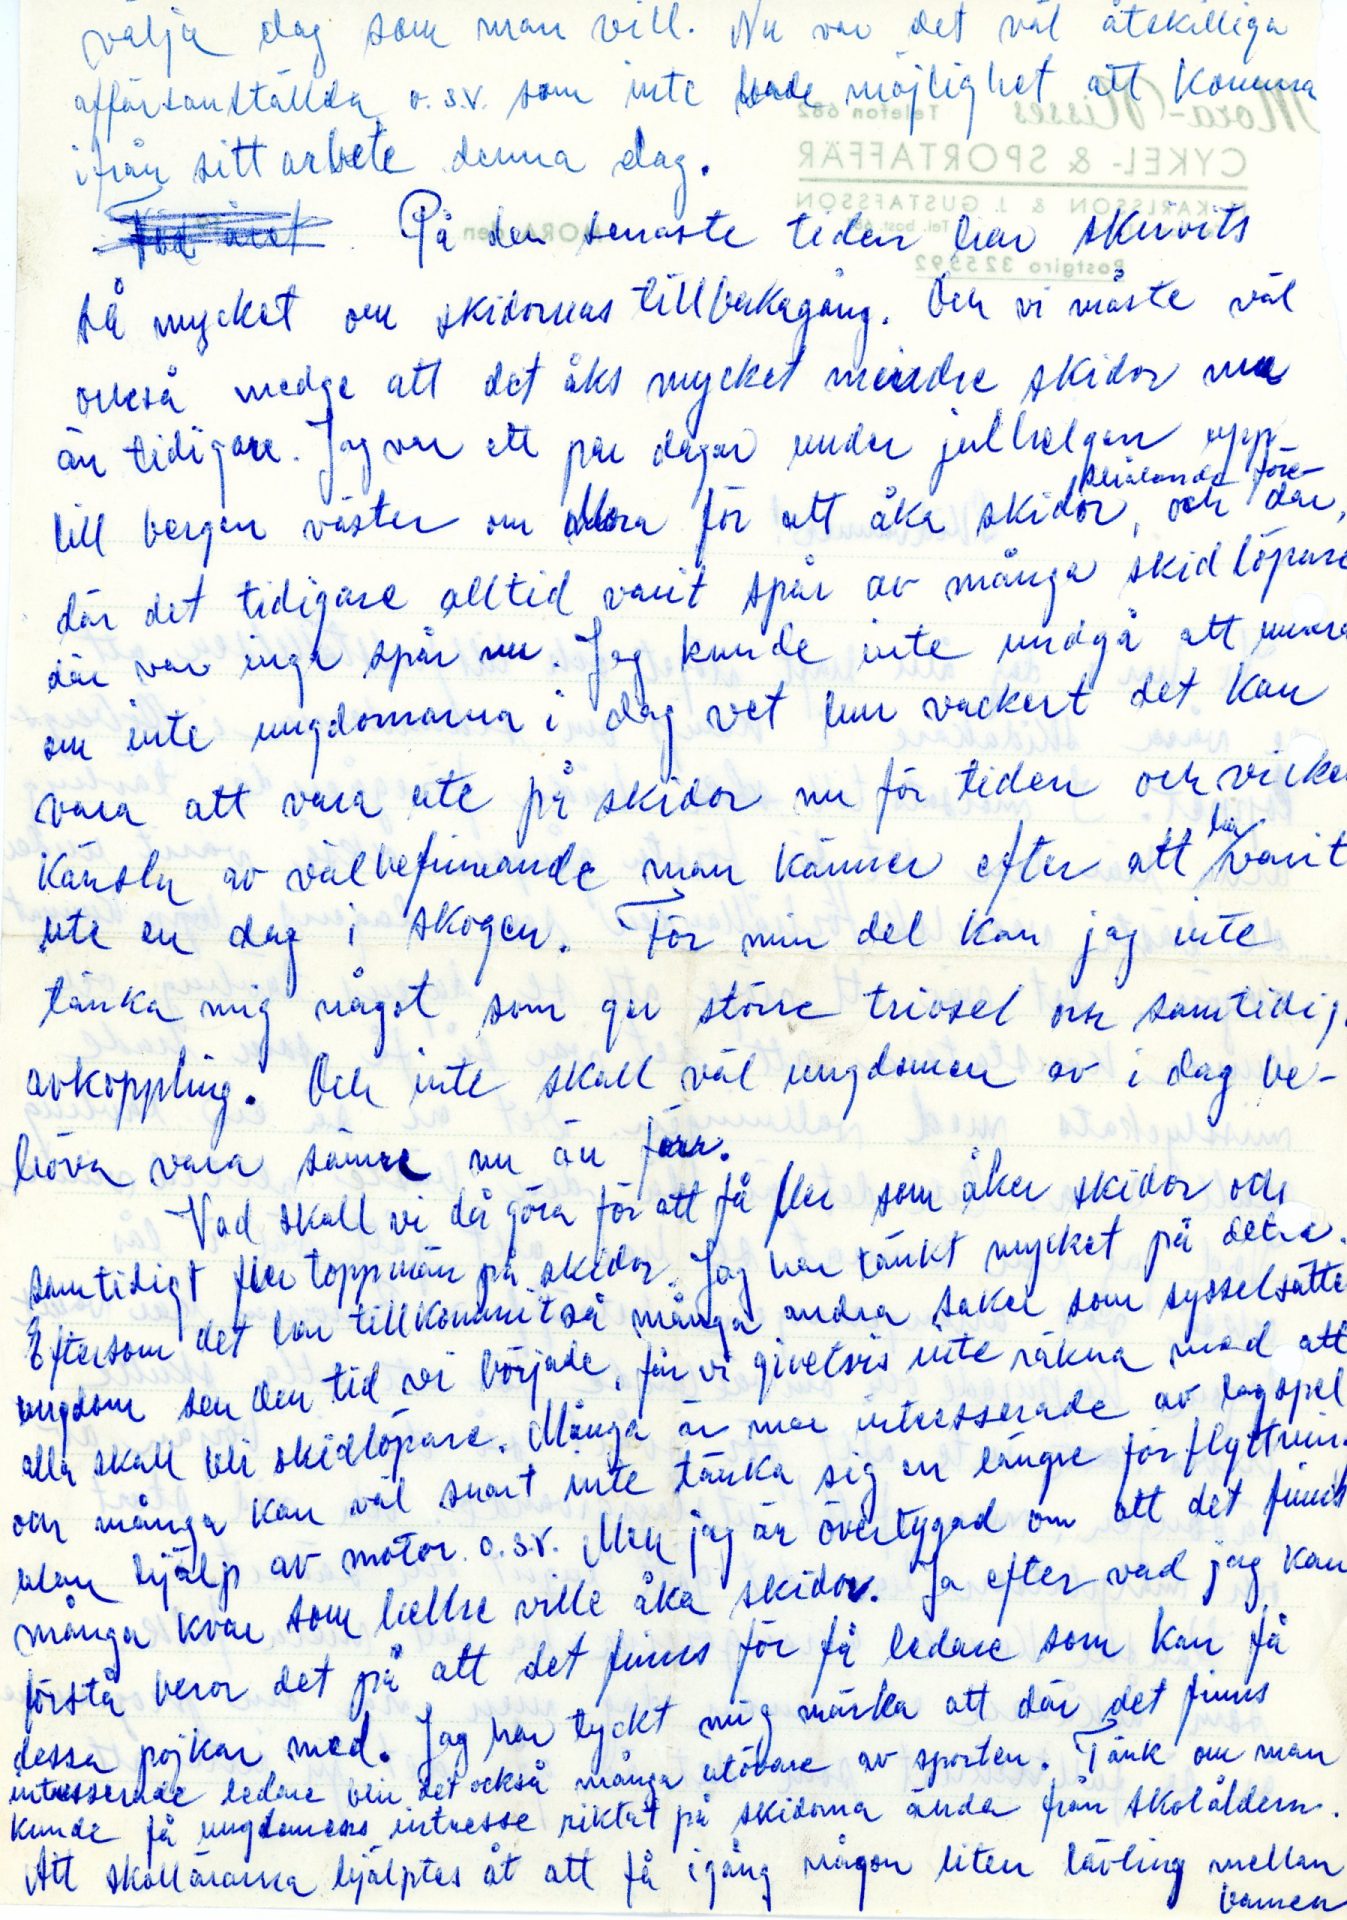 välja dag som man vill. Nu var det väl åtskilliga
affärsanställda o.s.v. som inte hade möjlighet att komma
ifrån sitt arbete denna dag.
På den senaste tiden har skrivits
så mycket om skidornas tillbakagång. Och vi måste väl
också medge att det åks mycket mindre skidor nu
än tidigare. Jag var ett par dagar under julhelgen upp
till bergen väster om Mora för att åka skidor, och där,
strålande före
där det tidigare alltid varit spår av många skidlöpare
där var inga spår nu. Jag kunde inte undgå att undra
om inte ungdomarna i dag vet hur vackert det kan
vara att vara ute på skidor nu för tiden och vilken
känsla av välbefinnande man känner efter att ha varit
ute en dag i skogen. För min del kan jag inte
tänka mig något som ger större trivsel och samtidig
avkoppling. Och inte skall väl ungdomen av i dag be-
höva vara sämre nu än förr.
Vad skall vi då göra för att få fler som åker skidor och
samtidigt fler toppmän på skidor. Jag har tänkt mycket på detta.
Eftersom det har tillkommit så många andra saker som sysselsätter
ungdom sen den tid vi började, får vi givetvis inte räkna med att
alla skall bli skidlöpare. Många är mer intresserade av lagspel
och många kan väl snart inte tänka sig en längre förflyttning
utan hjälp av motor o.s.v. Men jag är övertygad om att det finns
många kvar som hellre ville åka skidor. Ja efter vad jag kan
förstå beror det på att det finns för få ledare som kan få
dessa pojkar med. Jag har tyckt mig märka att där det finns
intresserade ledare blir det också många utövare av sporten. Tänk om man
kunde få ungdomens intresse riktat på skidorna ända från skolåldern.
Att skollärarna hjälptes åt att få igång någon liten tävling mellan
barnen
Mora-Nisses Telefon 682
CYKEL- & SPORTAFFÄR
KARLSSON & J. GUSTAFSSON
MORA
Postgiro 325592